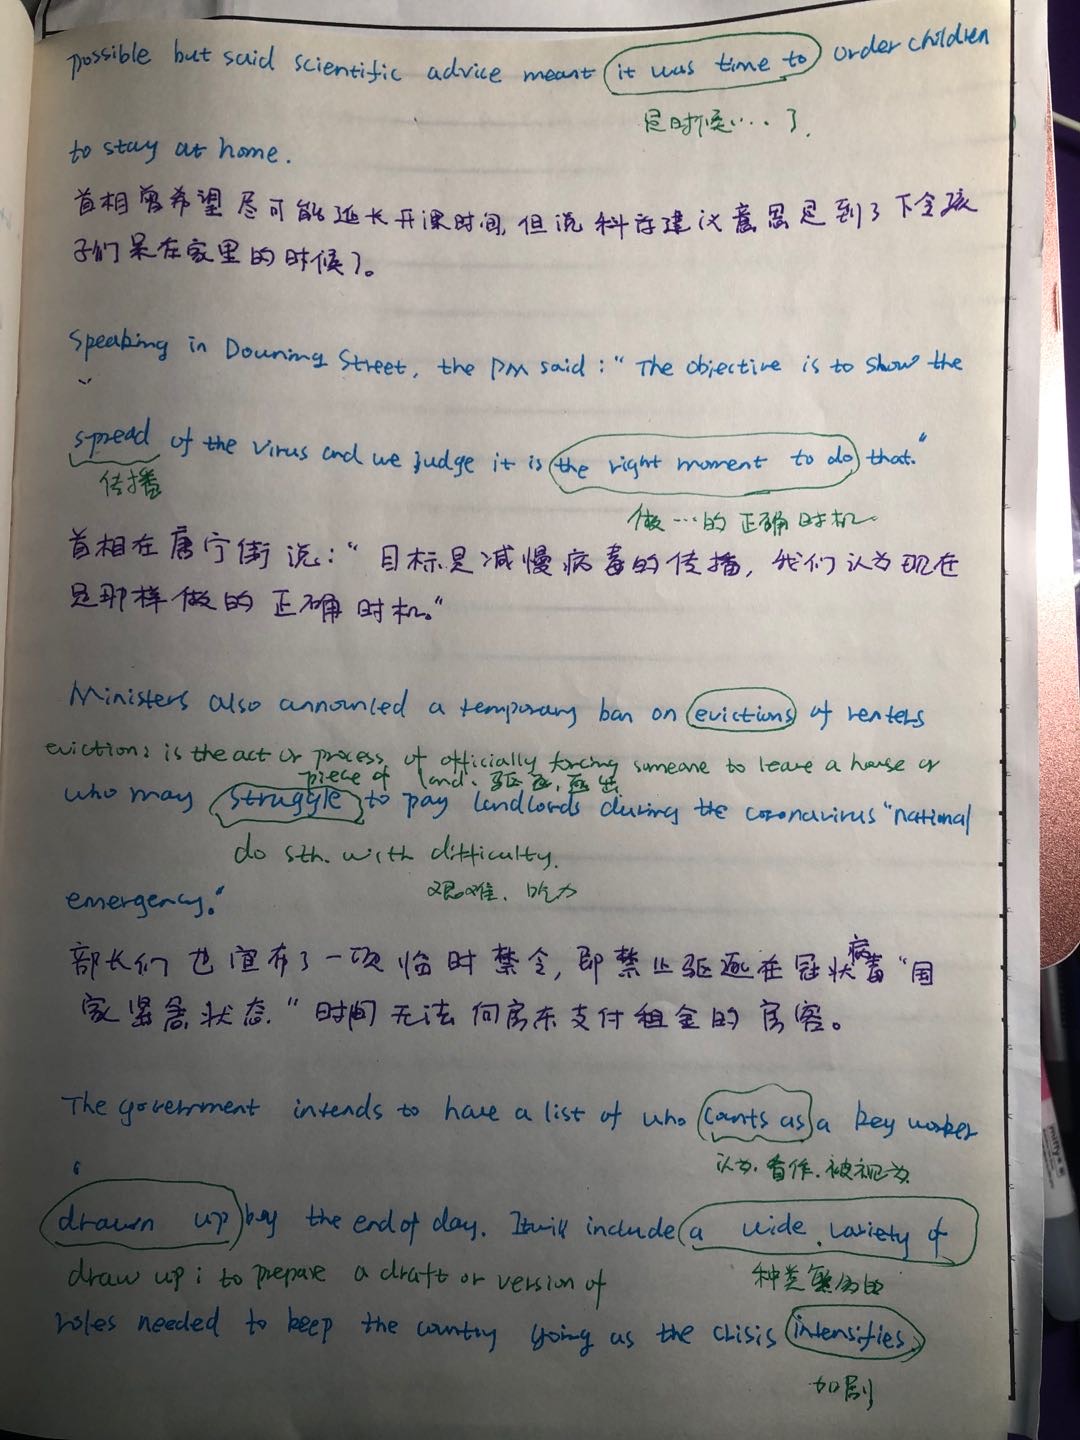 possible but said scientific advice meant it was time to order children
是时候……了.
to stay at home.
首相曾希望尽可能延长开课时间,但说科学建议意思是到了下令孩
子们呆在家里的时候了。
Speaking in Downing Street, the PM said: "The objective is to show the
spread of the virus and we judge it is the right moment to do that."
传播
做…的正确时机
首相在唐宁街说:"目标是减慢病毒的传播,我们认为现在
是那样做的正确时机。"
Ministers also announced a temporary ban on evictions of renters
eviction: is the act or process of officially forcing someone to leave a house or
piece of land. 驱逐,逐出
who may struggle to pay landlords during the coronavirus "national
do sth. with difficulty.
艰难、吃力
emergency."
部长们也宣布了一项临时禁令,即禁止驱逐在冠状病毒"国
家紧急状态"时间无法向房东支付租金的房客。
The government intends to have a list of who counts as a key worker
认为.看作.被视为
drawn up by the end of day. It will include a wide variety of
draw up: to prepare a draft or version of
种类繁多的
roles needed to keep the country going as the crisis intensifies.
加剧